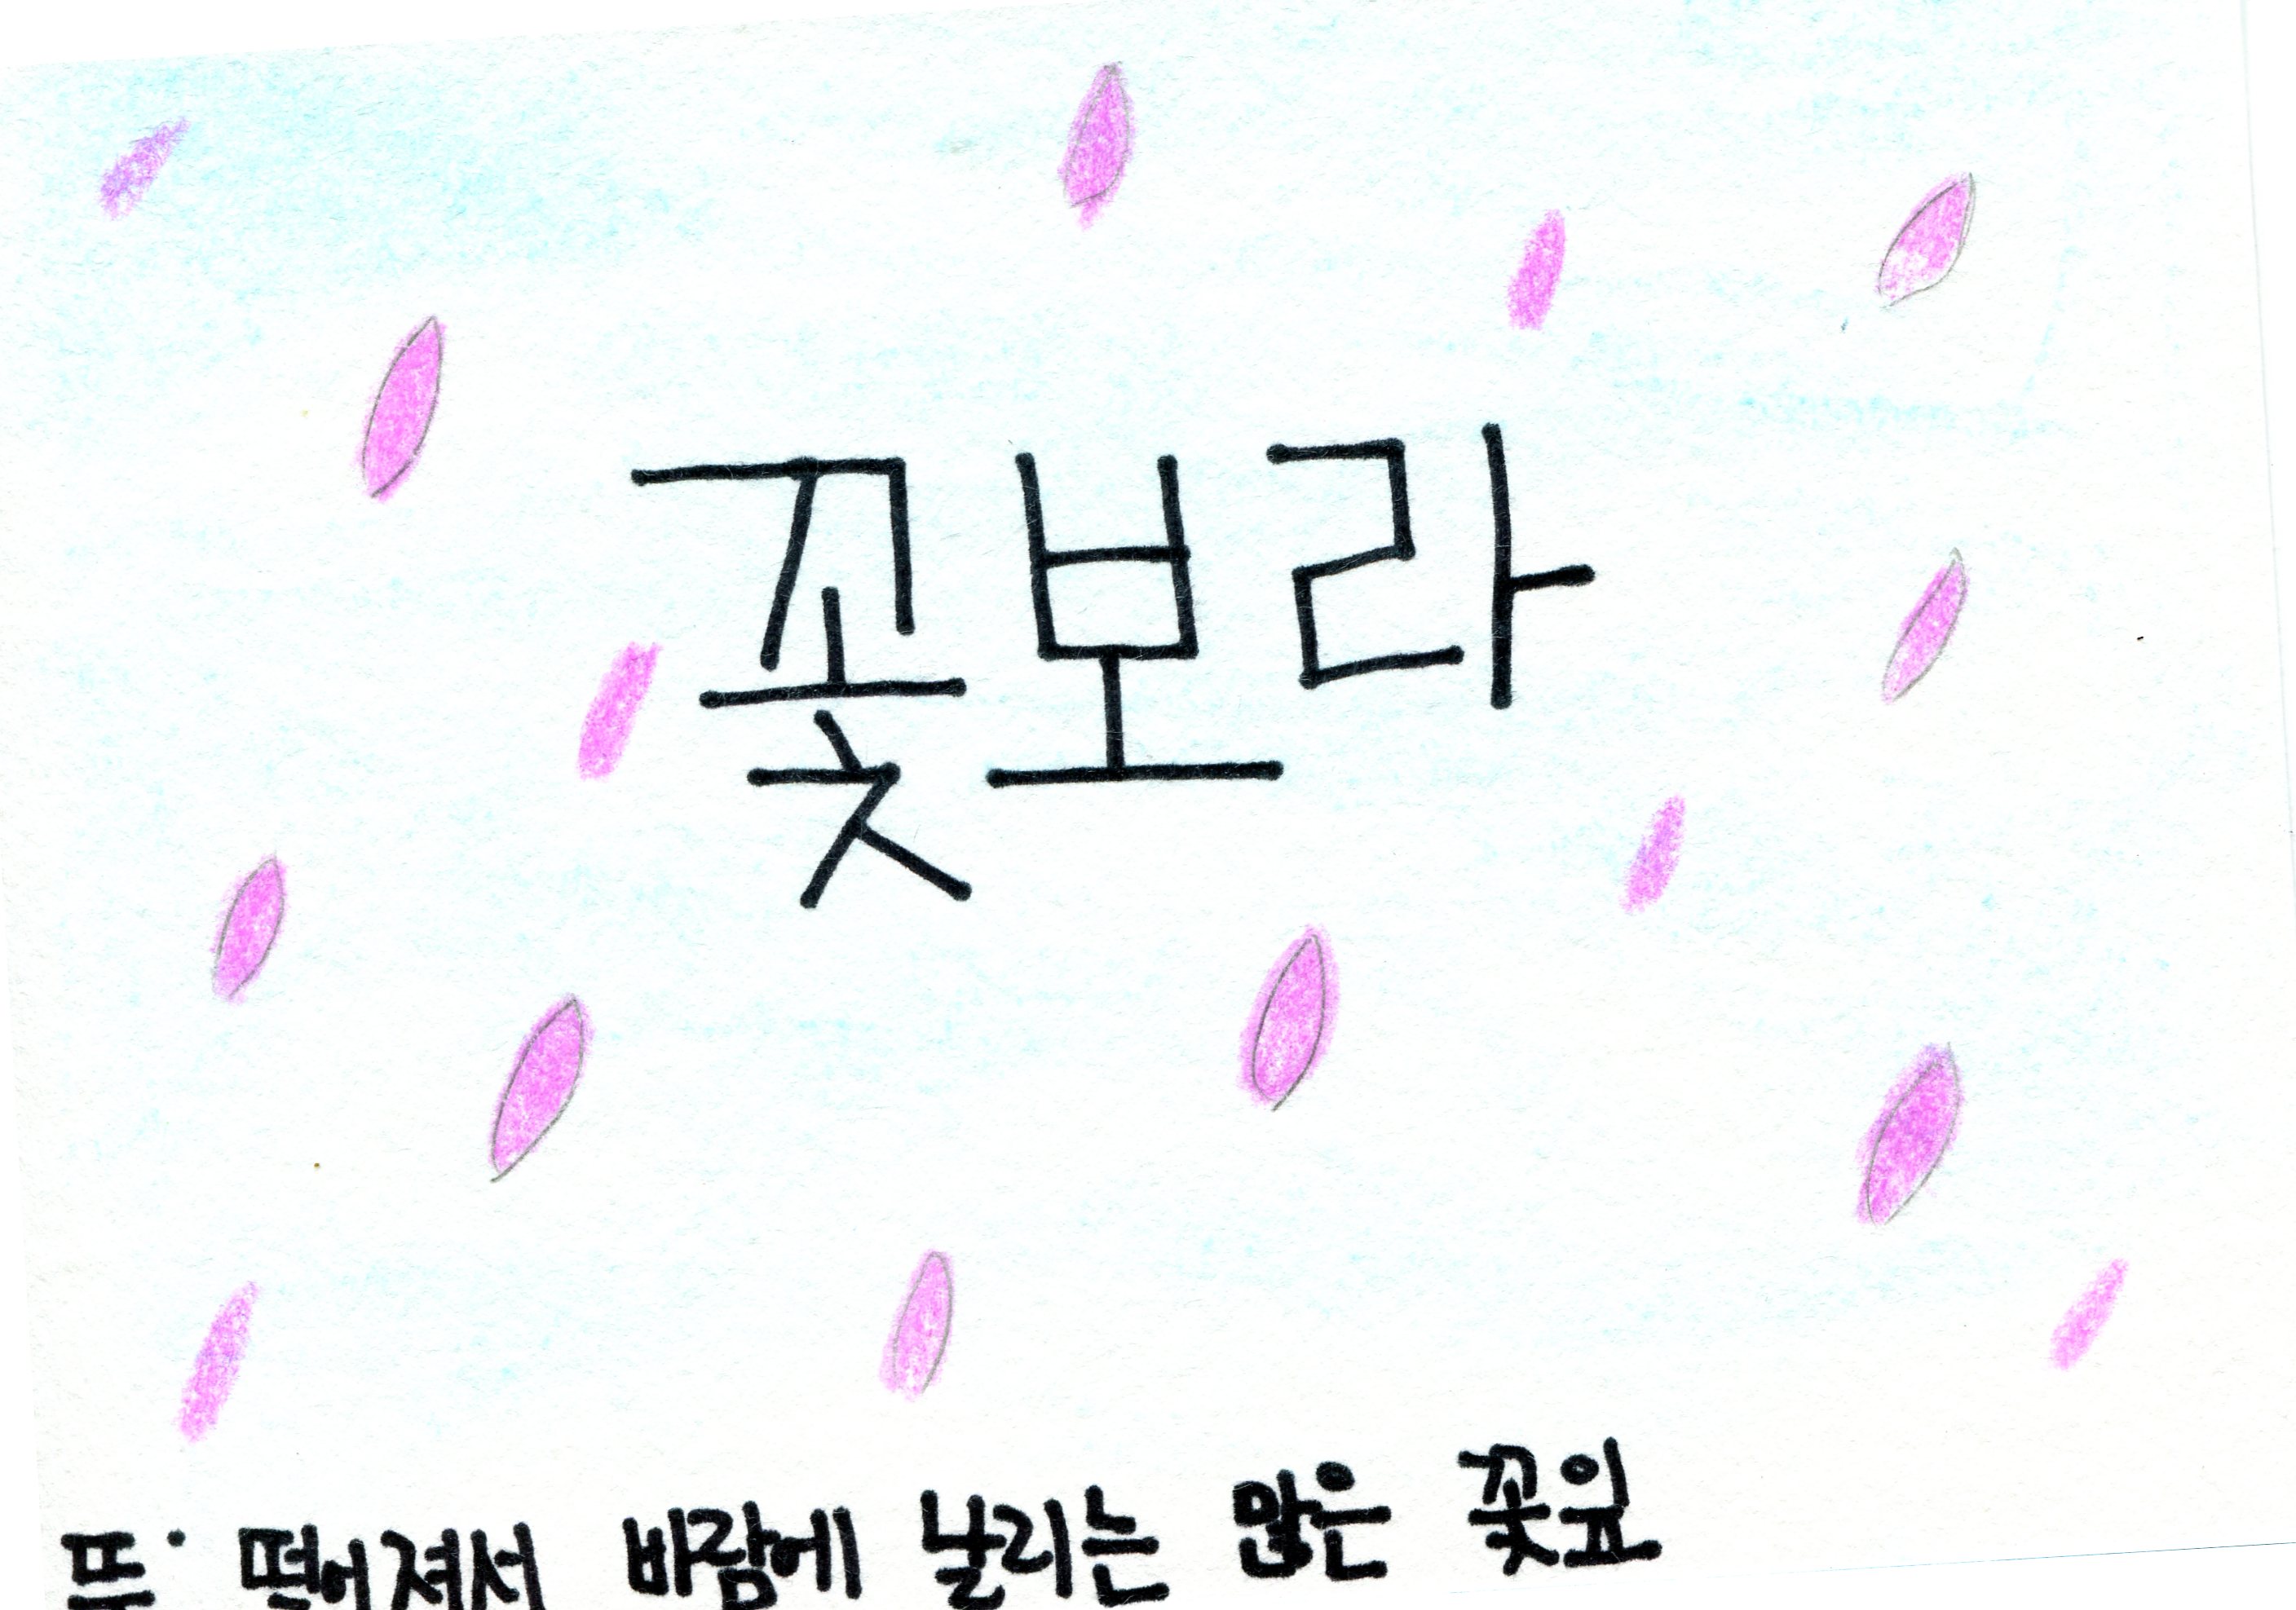 꽃보라
뜻: 떨어져서 바람에 날리는 많은 꽃잎